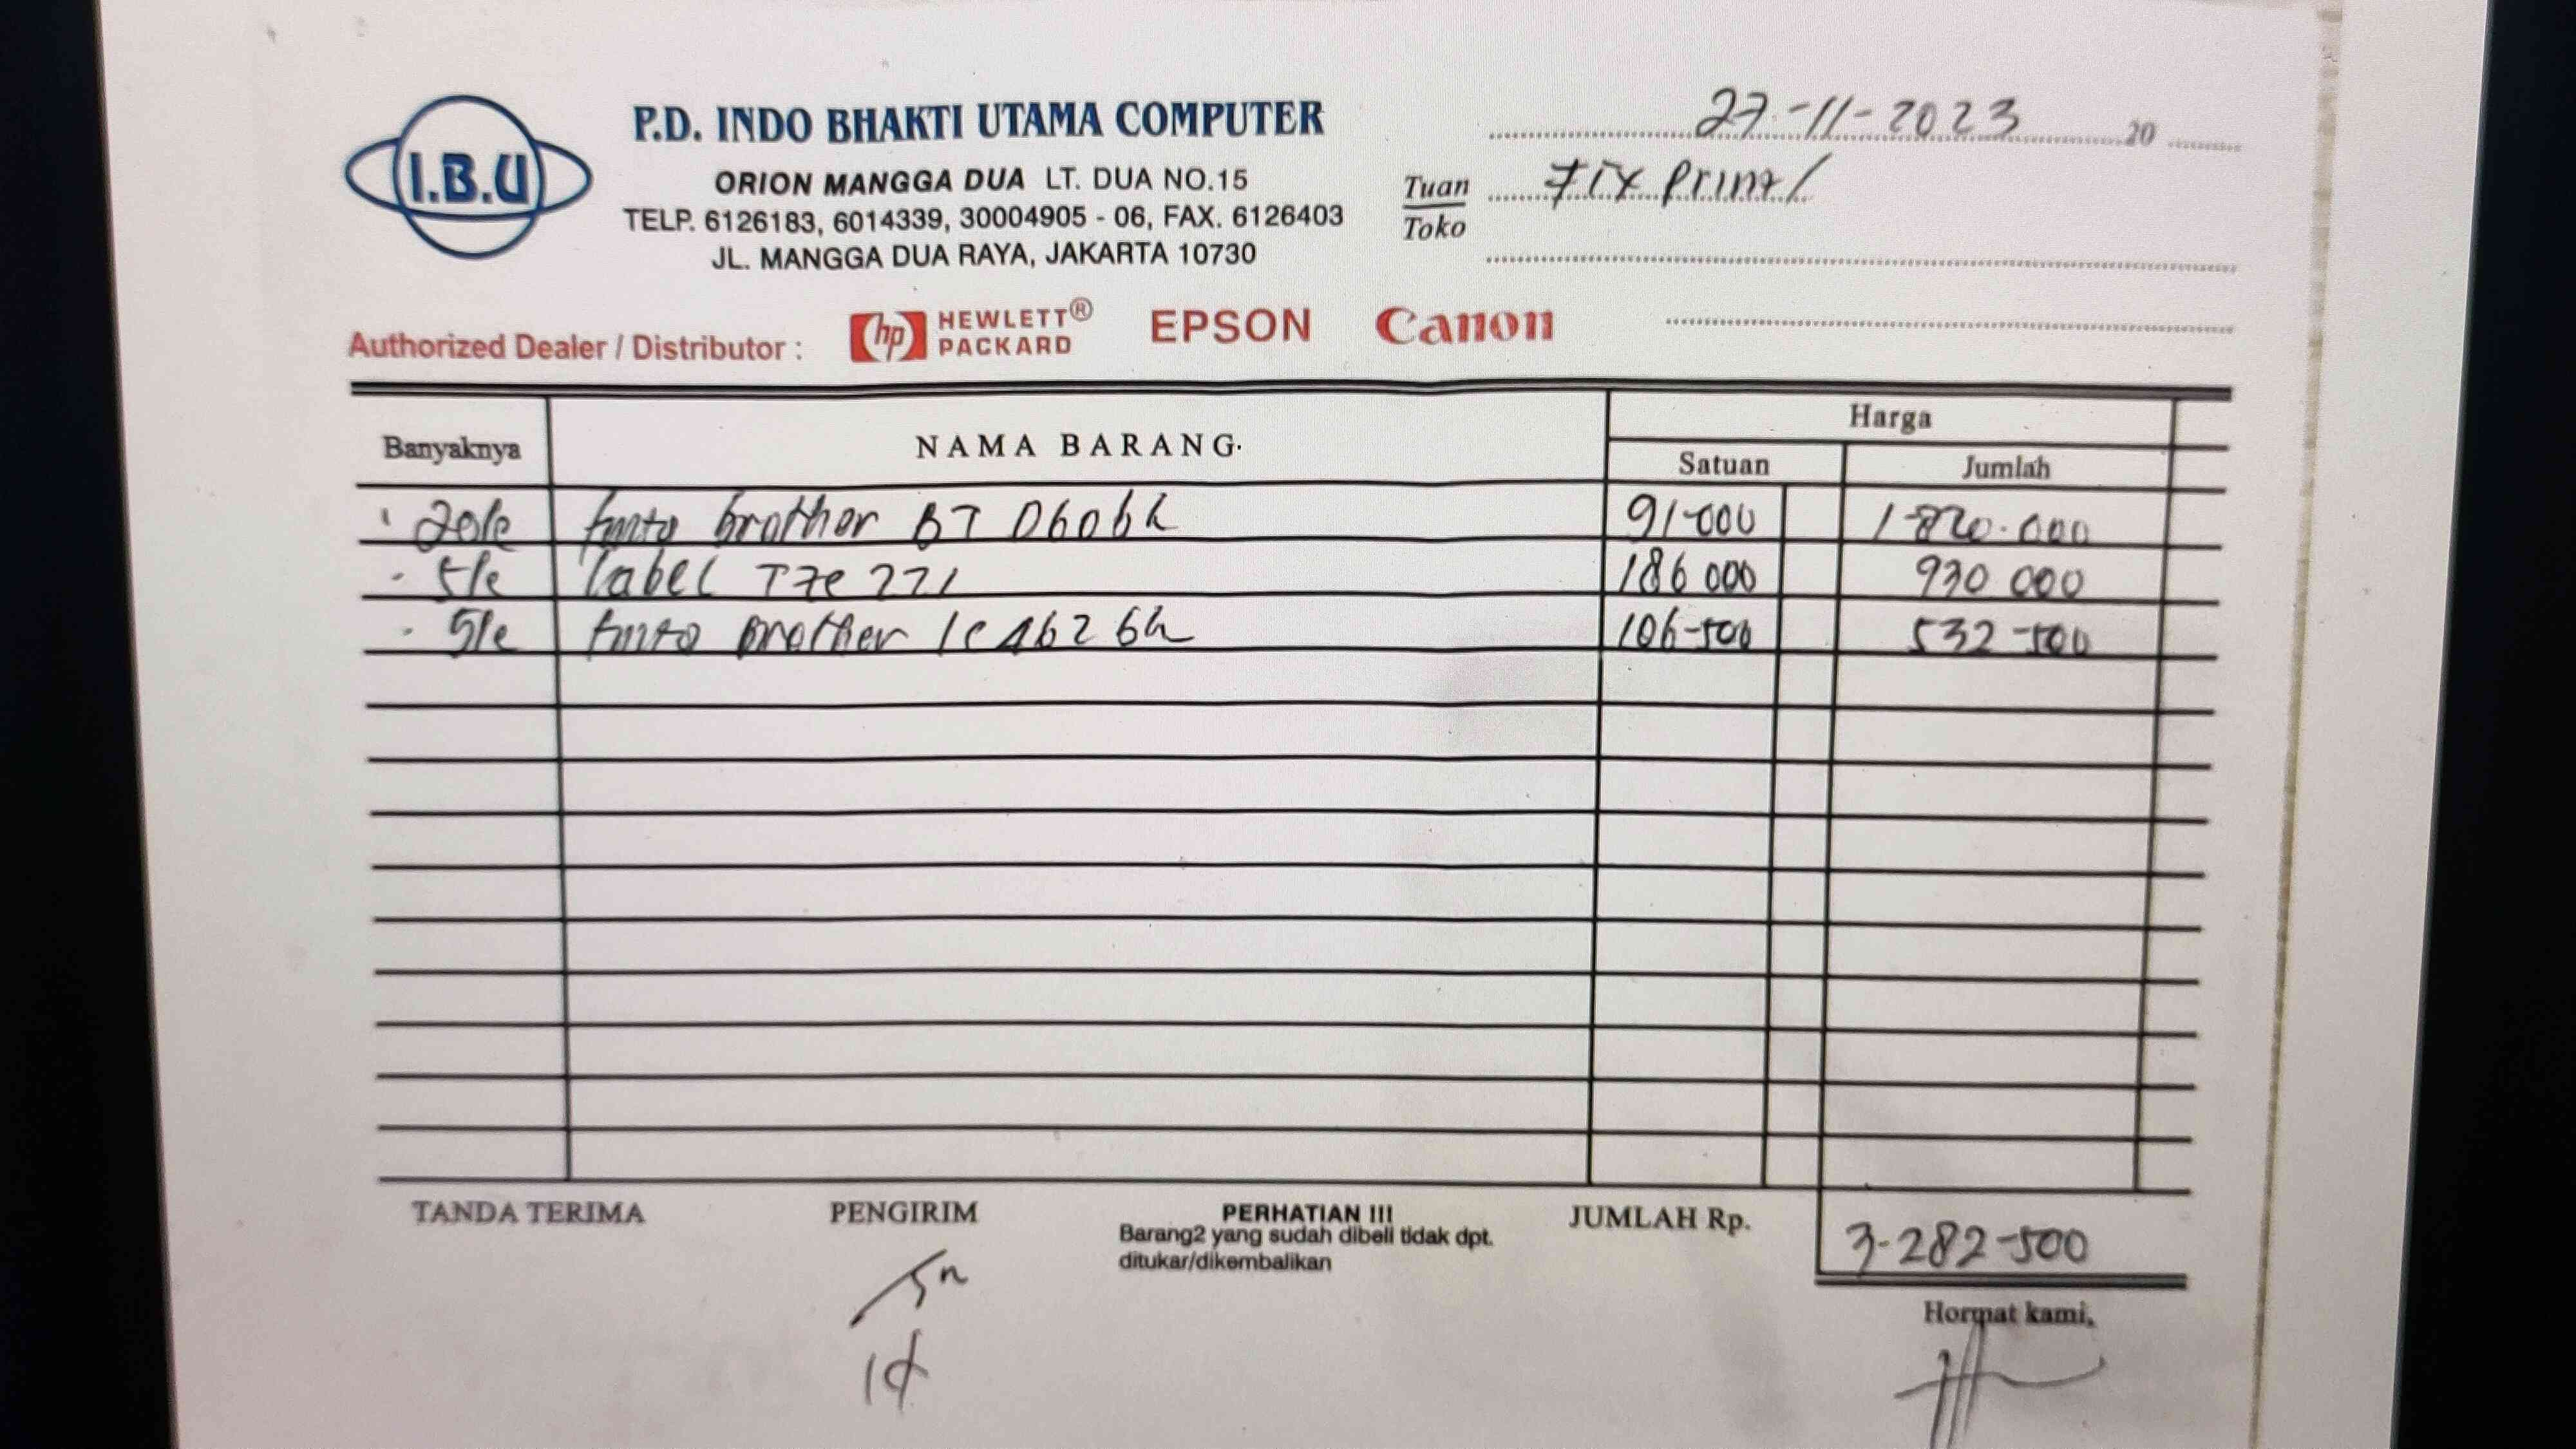 I.B.U
P.D. INDO BHAKTI UTAMA COMPUTER
ORION MANGGA DUA LT. DUA NO.15
TELP. 6126183, 6014339, 30004905 - 06, FAX. 6126403
JL. MANGGA DUA RAYA, JAKARTA 10730
27-11-2023 20
Tuan Fix Print
Toko
Authorized Dealer / Distributor : hp HEWLETT® PACKARD EPSON Canon
Banyaknya NAMA BARANG. Harga
Satuan Jumlah
tinta brother BT D60bk 91-000 1-820.000
label Tze 221 186 000 930 000
tinta brother 106-500 532-500
TANDA TERIMA PENGIRIM PERHATIAN !!! JUMLAH Rp. 3-282-500
Barang2 yang sudah dibeli tidak dpt.
ditukar/dikembalikan
Hormat kami,